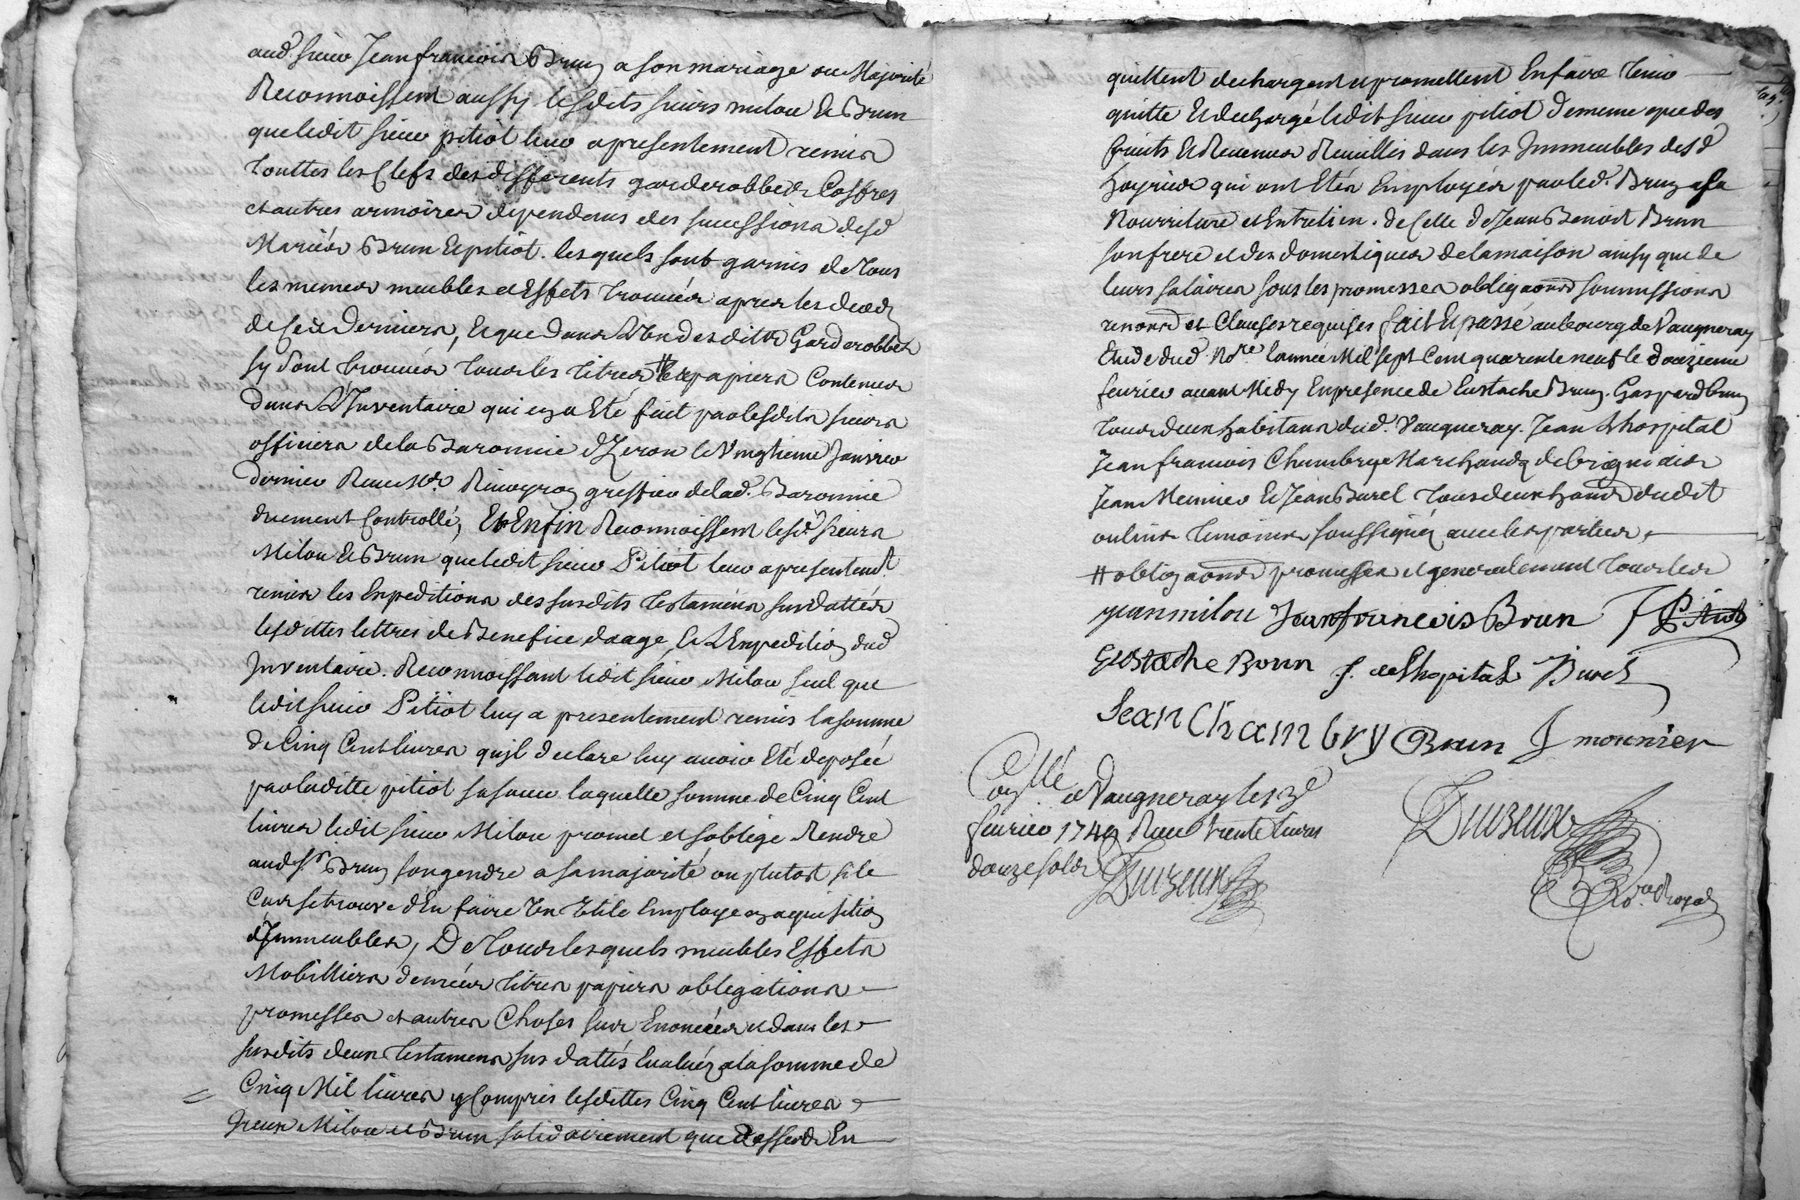 aud. sieur Jean francois Brun a son mariage ou Majorité
Reconnoissent aussy lesdits sieurs milou & Brun
queledit sieur pitiot leur a presentement remis
touttes les Clefs des differents garderobbes Coffres
et autres armoires dependans des successions desd
Mariés Brun & pitiot. lesquels sont garnis de tous
les memes meubles et Effets trouvés apres les deceds
de ces derniers, & que dans L'un desdits Garderobbes
sy sont trouvés tous les titres # & papiers Contenus
dans L'Inventaire qui en a Eté fait par lesdits sieurs
officiers de la Baronnie d'Izeron le Vingtieme Janvier
dernier Receu Me. greffier delad. Baronnie
duement Controllé, Et Enfin Reconnoissent lesd sieurs
Milou & Brun queledit sieur Pitiot leur a presentemt
remis les Expeditions des susdits testamens susdattés
lesdittes lettres de Benefice daage, & L'Expedition dud
Inventaire. Reconnoissant ledit sieur Milou seul que
ledit sieur Pitiot luy a presentement remis la somme
de Cinq Cent livres qu'il declare luy avoir Eté deposée
par laditte pitiot sa soeur laquelle somme de Cinq Cent
livres ledit sieur Milou promet et soblige Rendre
aud sr Brun son gendre a sa majorité ou plutost si le
Cas se trouve d'En faire Un Utile Employ en aquisition
d'Immeubles, De tous lesquels meubles Effets
Mobilliers denrées titres papiers obligations
promesses et autres Choses sus Enoncées et dans les
susdits deux testamens sus dattés Evalués a la somme de
Cinq Mil livres y Compris lesdittes Cinq Cent livres
sieurs Milou et Brun solidairement En
quittent dechargent & promettent En faire tenir
quitte & dechargé ledit sieur pitiot de meme que des
fruits & Revenus Recueillis dans les Immeubles desd
hoyries qui ont Etés Employés par led. Brun a sa
Nourriture et Entretien. de Celle de Jean Benoist Brun
son frere et des domestiques de la maison ainsy que de
leurs salaires sous les promesses obligaons soumissions
renons et Clauses requises fait & passé au bourg de Vaugneray
Etude dud. Nore l'année Mil sept Cent quarente neuf le douzieme
fevrier avant Midy En presence de Eustache Brun. Gaspard brun
tous deux habitans dud. Vaugneray. Jean L'hospital
Jean francois Chambry Marchands de brignais
Jean Meunier & Jean Burel tous deux habns dudit
oulins temoins soussignés avec les parties
# obligaons promesses et generalement tous les
jean milou Jean francois Brun Pitiot
Eustache Brun J. de Lhopital J Burel
Jean Chambry Brun J mounier
Conllé a Vaugneray le 13e
fevrier 1749 Receu trente livres
douze sols
Duizeux
Duizeux
No. Royal